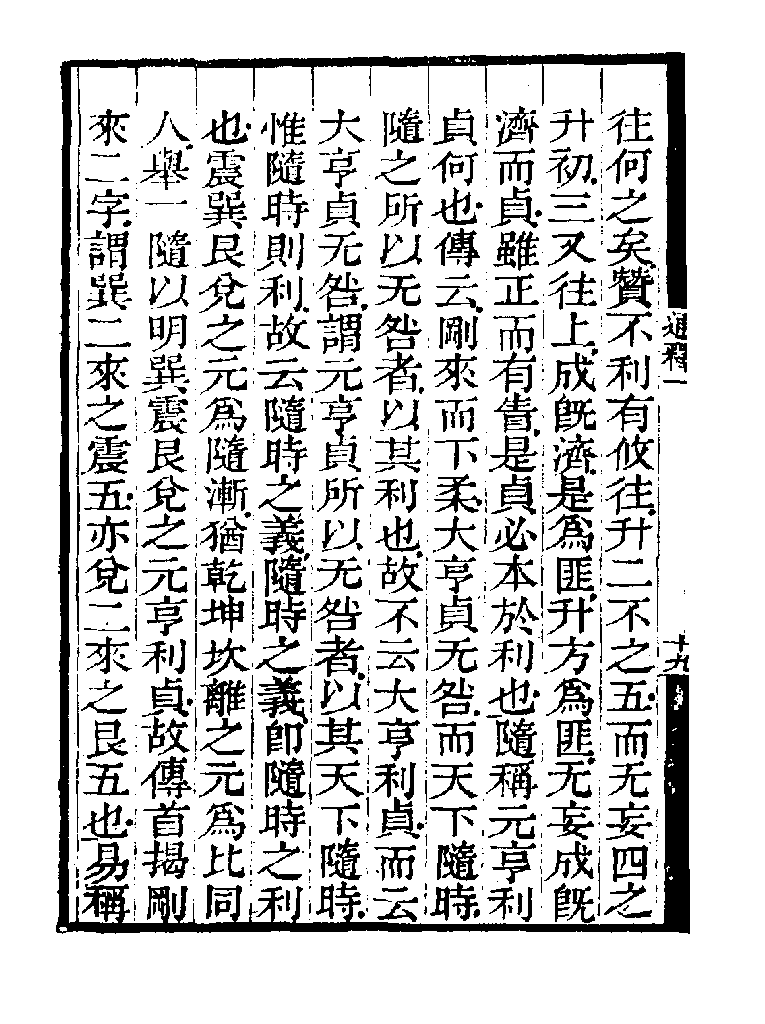 往何之矣贊不利有攸往升二不之五而无妄四之
升初三又往上成旣濟是爲匪升方爲匪无妄成旣
濟而貞雖正而有眚是貞必本於利也隨稱元亨利
貞何也傳云剛來而下柔大亨貞无咎而天下隨時
隨之所以无咎者以其利也故不云大亨利貞而云
大亨貞无咎謂元亨貞所以无咎者以其天下隨時
惟隨時則利故云隨時之義隨時之義卽隨時之利
也震巽艮兌之元爲隨漸猶乾坤坎離之元爲比同
人舉一隨以明巽震艮兌之元亨利貞故傳首揭剛
來二字謂巽二來之震五亦兌二來之艮五也易稱
通釋一
十九